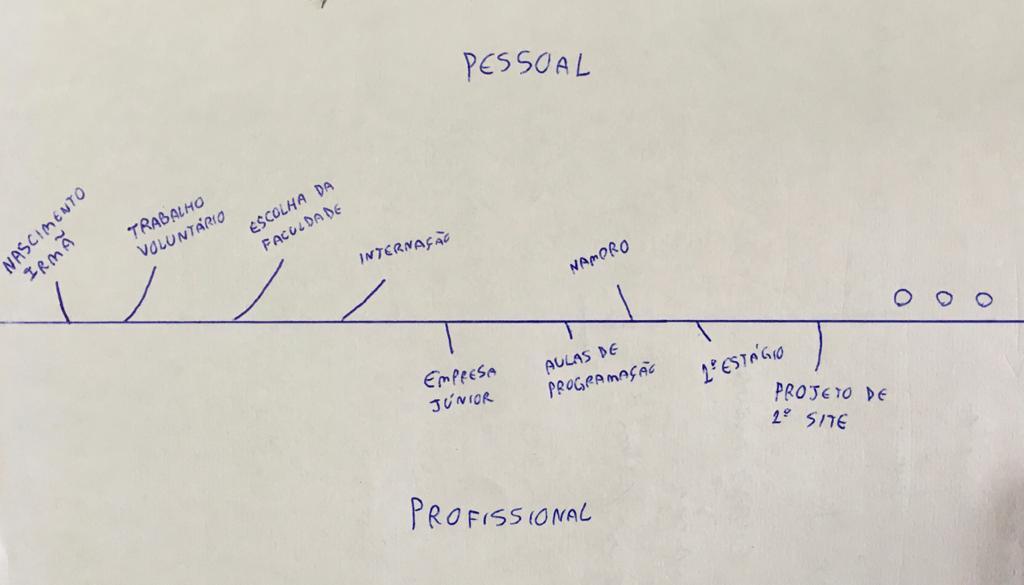 PESSOAL
NASCIMENTO
IRMÃ
TRABALHO
VOLUNTÁRIO
ESCOLHA DA
FACULDADE
INTERNAÇÃO
NAMORO
EMPRESA
JÚNIOR
AULAS DE
PROGRAMAÇÃO
1º ESTÁGIO
PROJETO DE
1º SITE
PROFISSIONAL